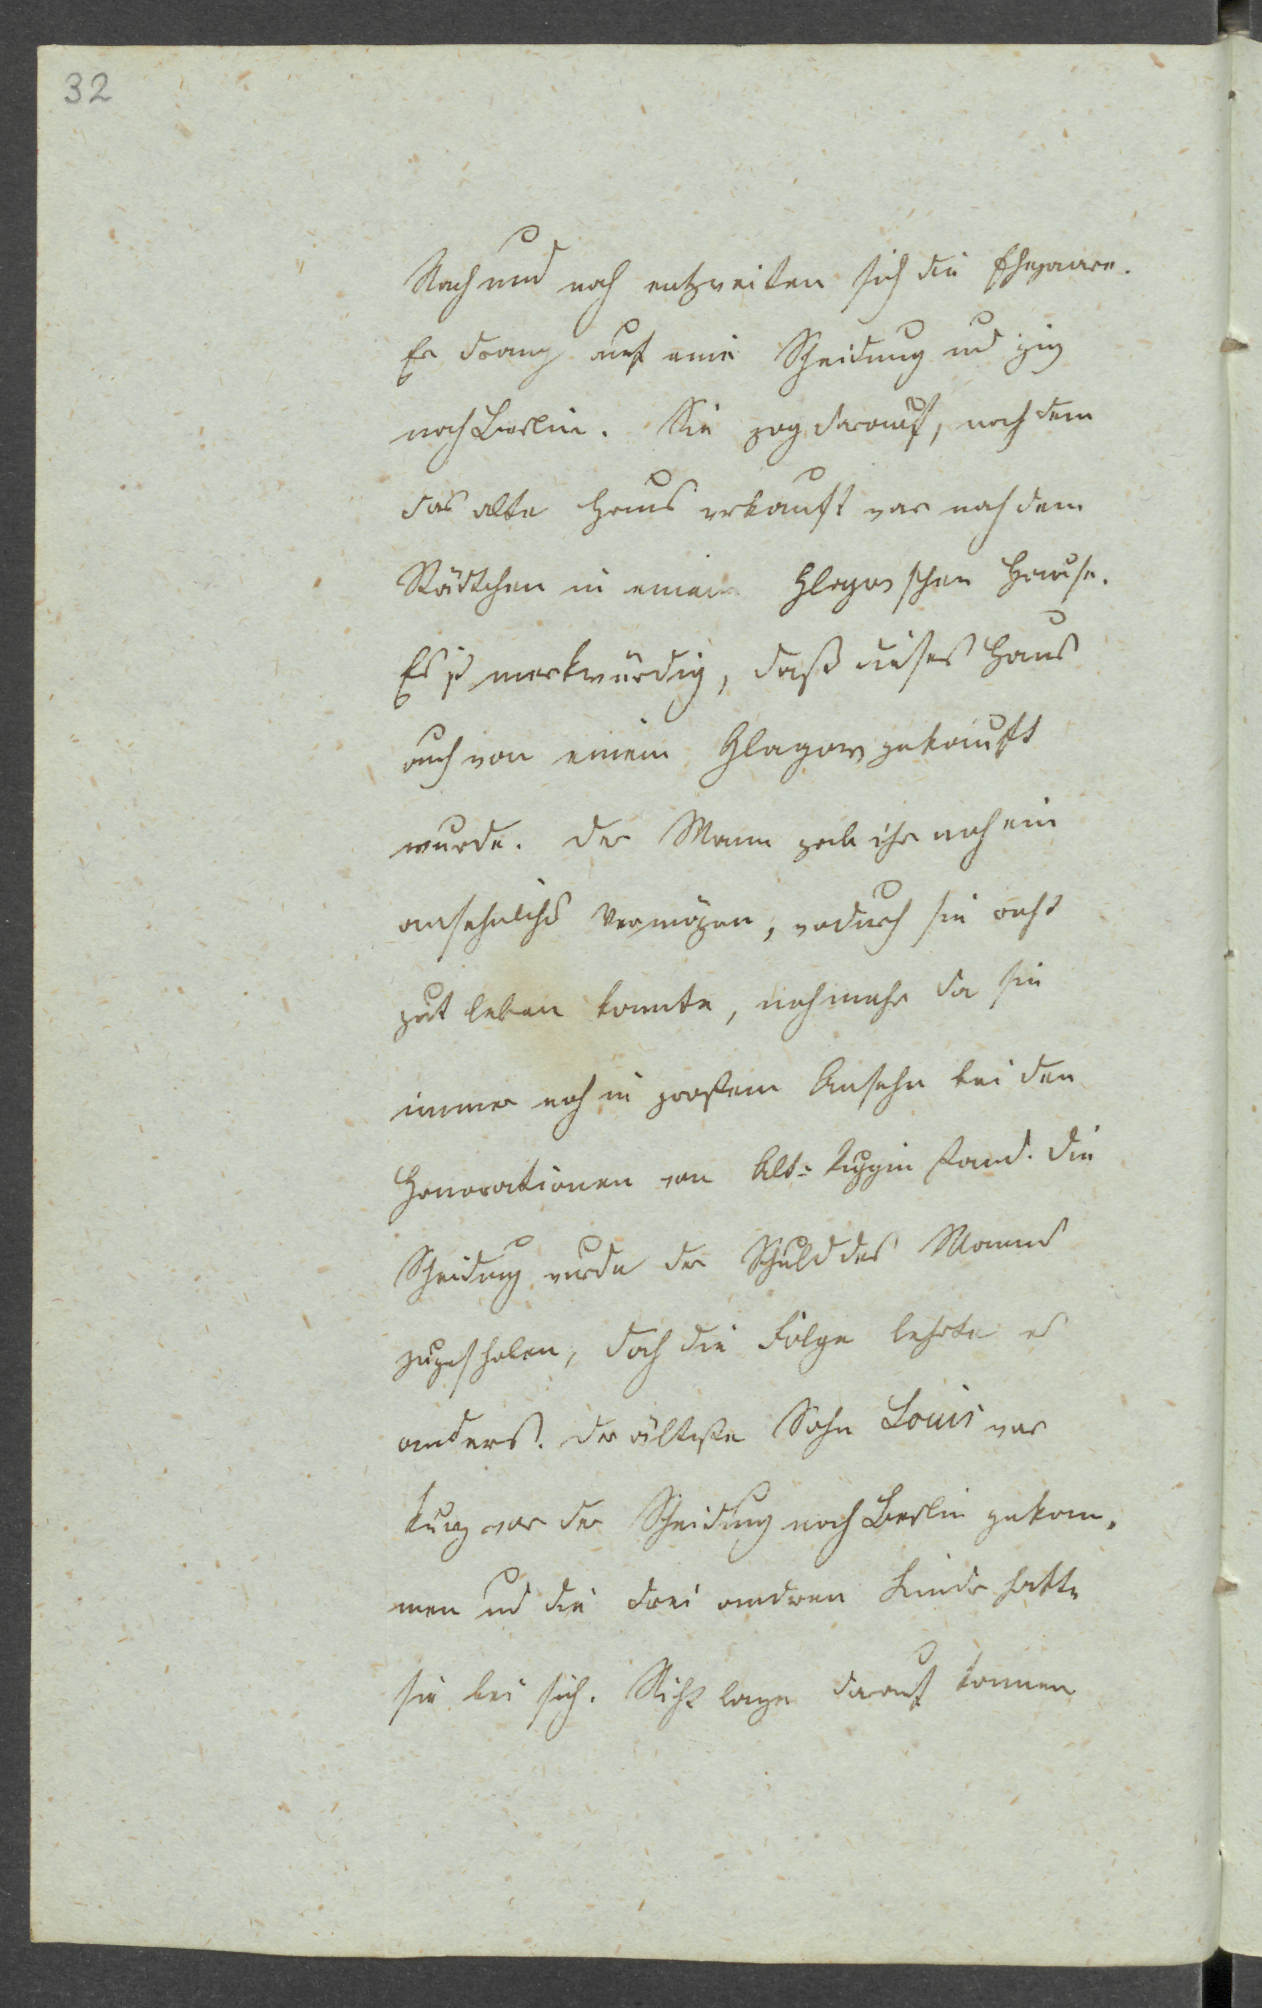 32
Nach und nach entzweiten sich die Ehepaare.
Er drang auf eine Scheidung und ging
nach Berlin. Sie zog darauf, nach dem
das alte Haus verkauft war nach dem
Städtchen in einem Glagowschen Hause.
Es ist merkwürdig, daß dieses Haus
auch von einem Glagow gekauft
wurde. Der Mann gab ihr noch ein
ansehnliches Vermögen, wodurch sie recht
gut leben konnte, noch mehr da sie
immer noch in großem Ansehn bei den
Honorationen von Alt-Ruppin stand. Die
Scheidung wurde der Schuld des Mannes
zugeschoben, doch die Folge lehrte es
anders. Der älteste Sohn Louis war
kurz vor der Scheidung nach Berlin gekom-
men und die drei anderen Kinder hatte
sie bei sich. Nicht lange darauf kamen